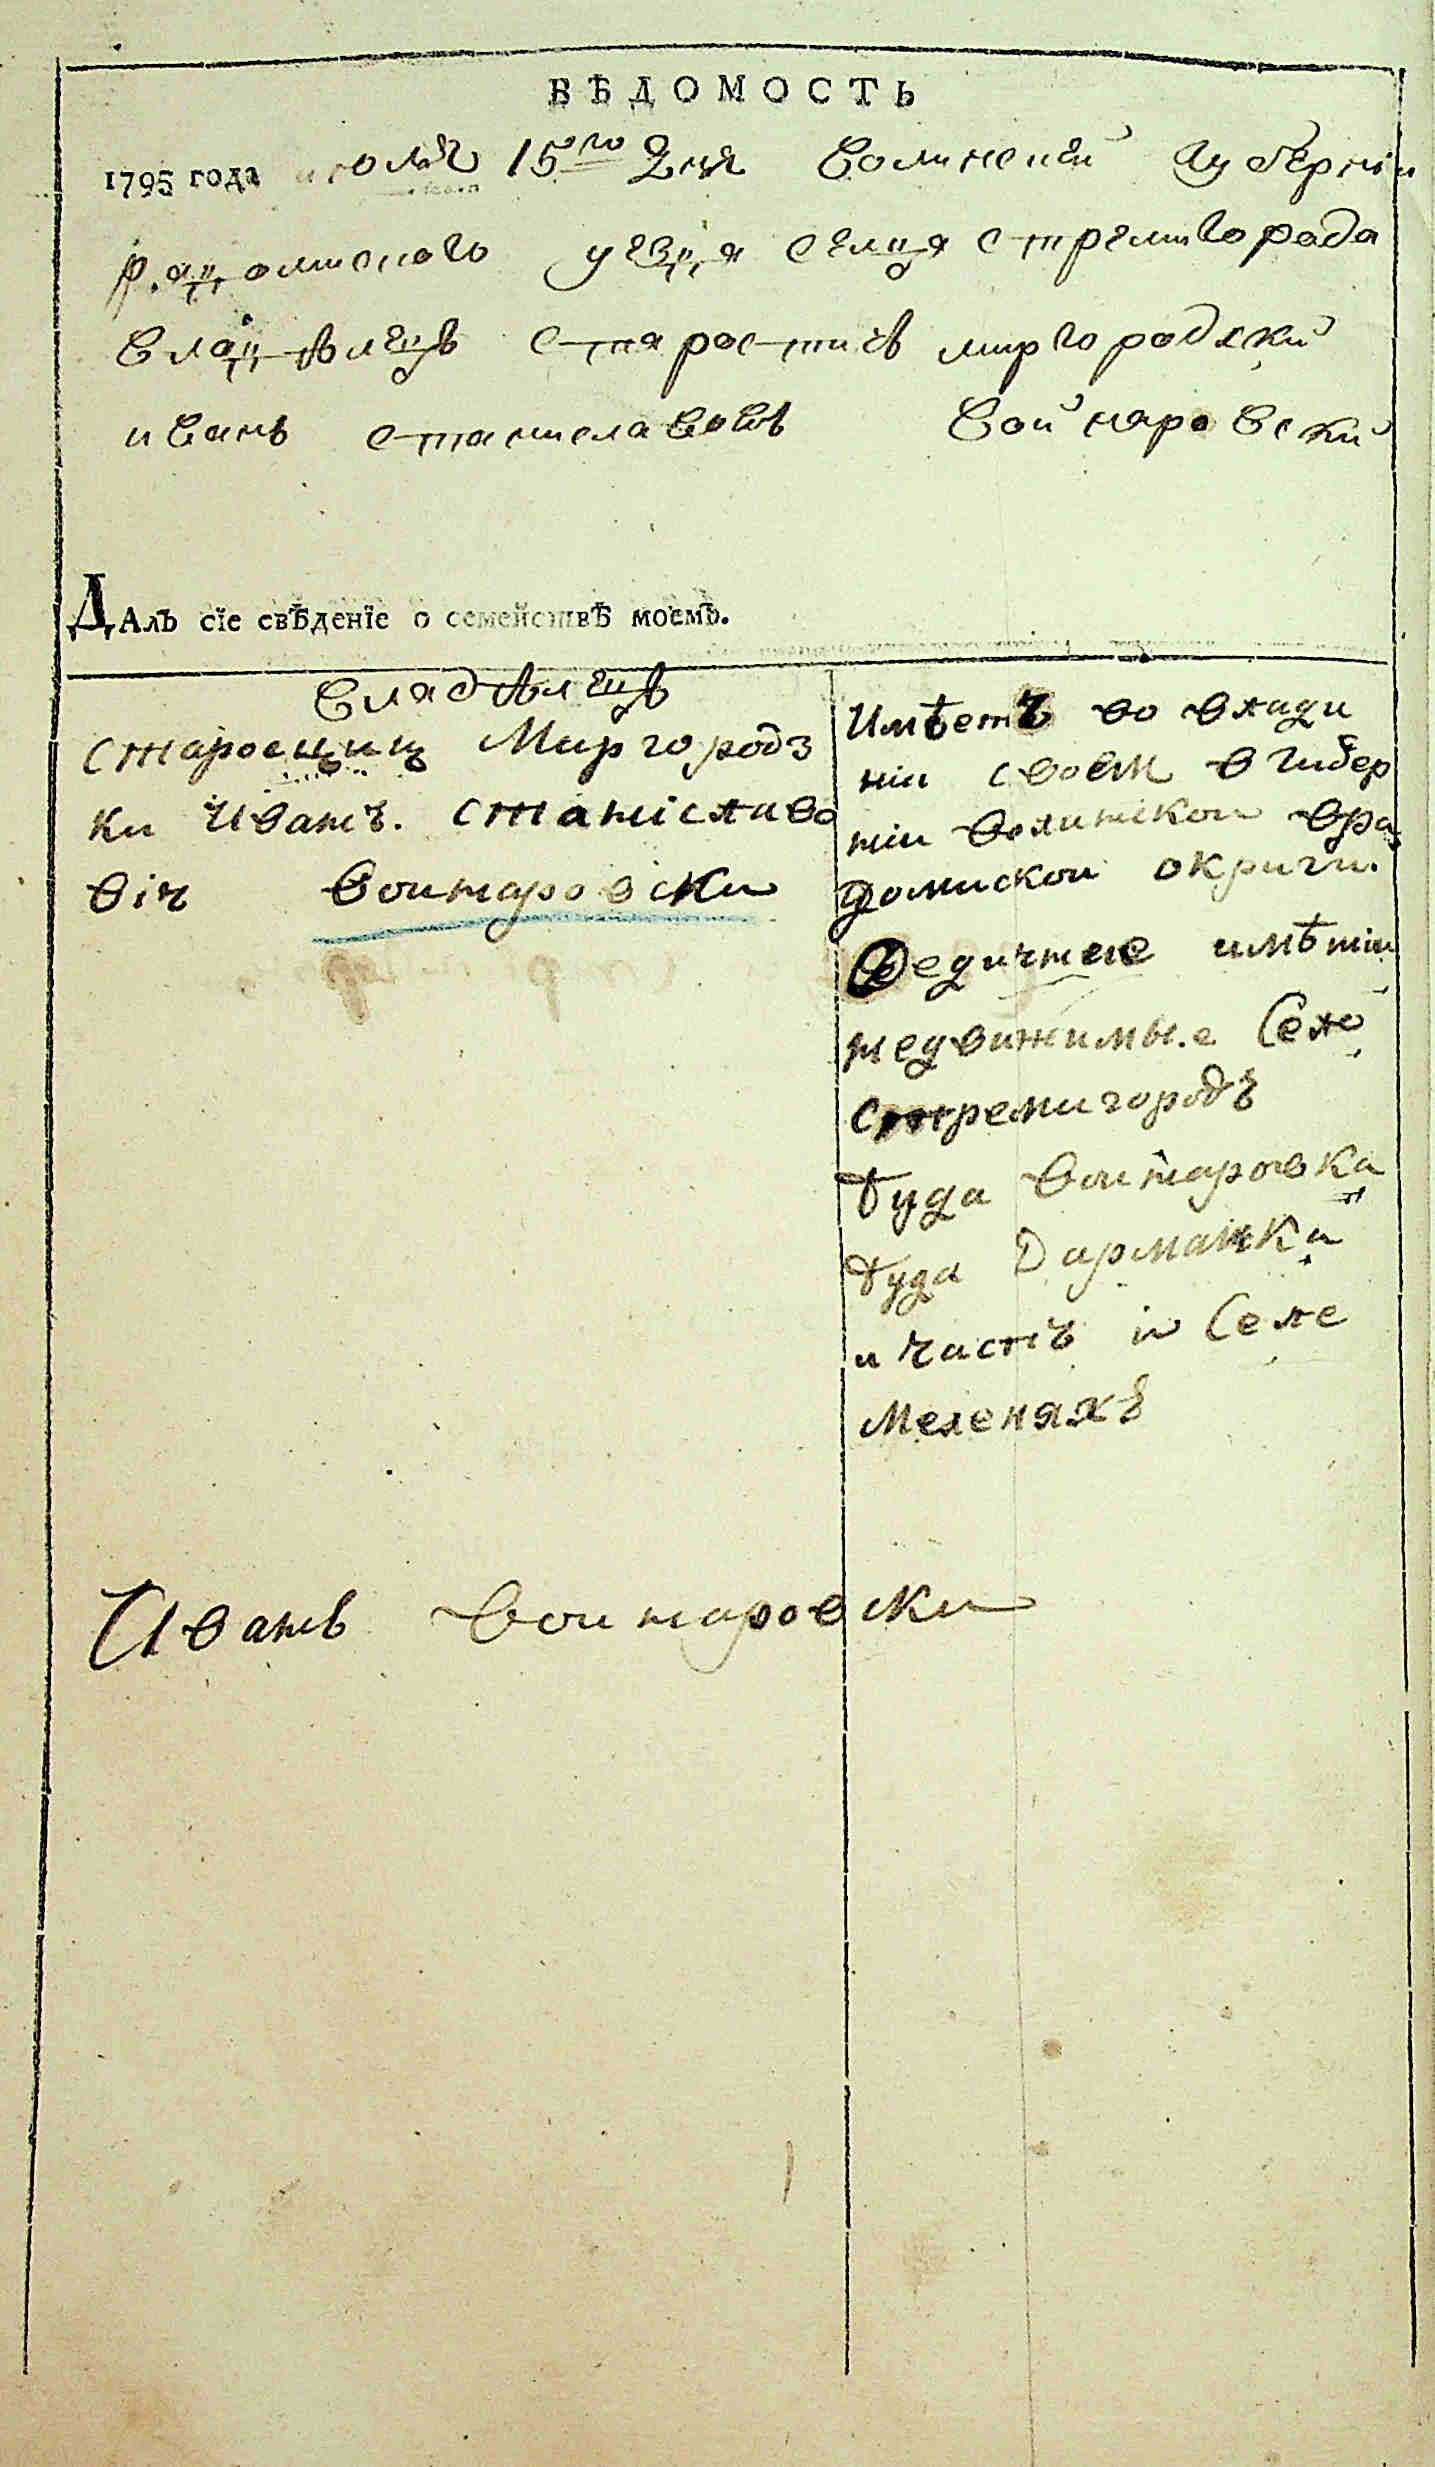 ВѢДОМОСТЬ
1795 года июля 15го дня Волинской Губернїи
радомиского уезда селца стремигорода
владѣлецъ старостичъ миргородский
иванъ станиславовъ войнаровский
ДАлъ сїе свѣденїе о семействѣ моемъ.
владѣлецъ
старосциц Миргородз
ки Иванъ. станіславо
віч воинаровски
Имѣетъ во влади
ніи своем в губер
ніи волинскои вра
домискои округи.
Дедичное имѣніи
недвижимы.е Село
стремигородъ
буда воинаровка
буда Дарманка
и частъ в Селе
меленяхъ
Иванъ воинаровски